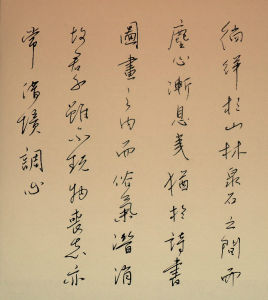 徜徉於山林泉石之間而
塵心漸息夷猶於詩書
圖畫之內而俗氣潛消
故君子雖不玩物喪志亦
常借境調心